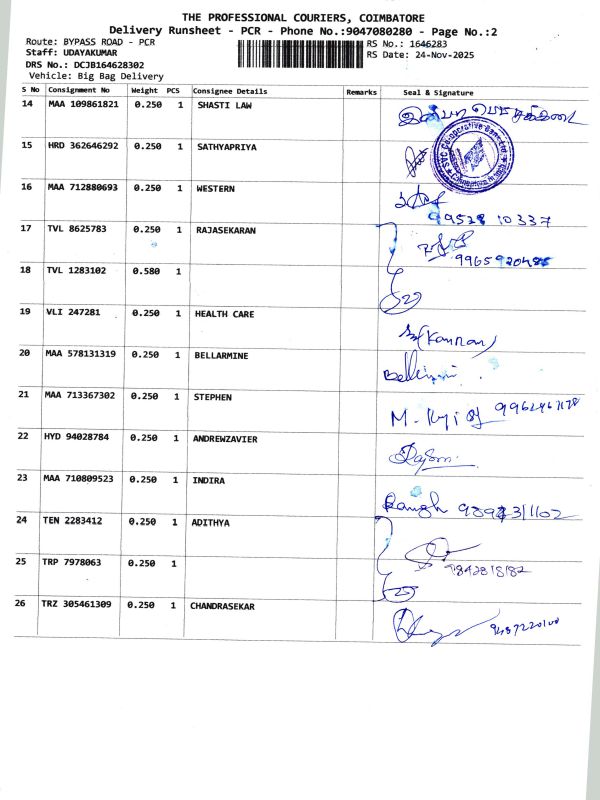 THE PROFESSIONAL COURIERS, COIMBATORE
Delivery Runsheet - PCR - Phone No.:9047080280 - Page No.:2
Route: BYPASS ROAD - PCR
RS No.: 1646283
Staff: UDAYAKUMAR
RS Date: 24-Nov-2025
DRS No.: DCJB164628302
Vehicle: Big Bag Delivery
S No Consignment No Weight PCS Consignee Details Remarks Seal & Signature
14 MAA 109861821 0.250 1 SHASTI LAW
15 HRD 362646292 0.250 1 SATHYAPRIYA
16 MAA 712880693 0.250 1 WESTERN
99528 10337
17 TVL 8625783 0.250 1 RAJASEKARAN
18 TVL 1283102 0.580 1
19 VLI 247281 0.250 1 HEALTH CARE
(Kannan)
20 MAA 578131319 0.250 1 BELLARMINE
21 MAA 713367302 0.250 1 STEPHEN
22 HYD 94028784 0.250 1 ANDREWZAVIER
23 MAA 710809523 0.250 1 INDIRA
24 TEN 2283412 0.250 1 ADITHYA
25 TRP 7978063 0.250 1
9842818182
26 TRZ 305461309 0.250 1 CHANDRASEKAR
9487220100